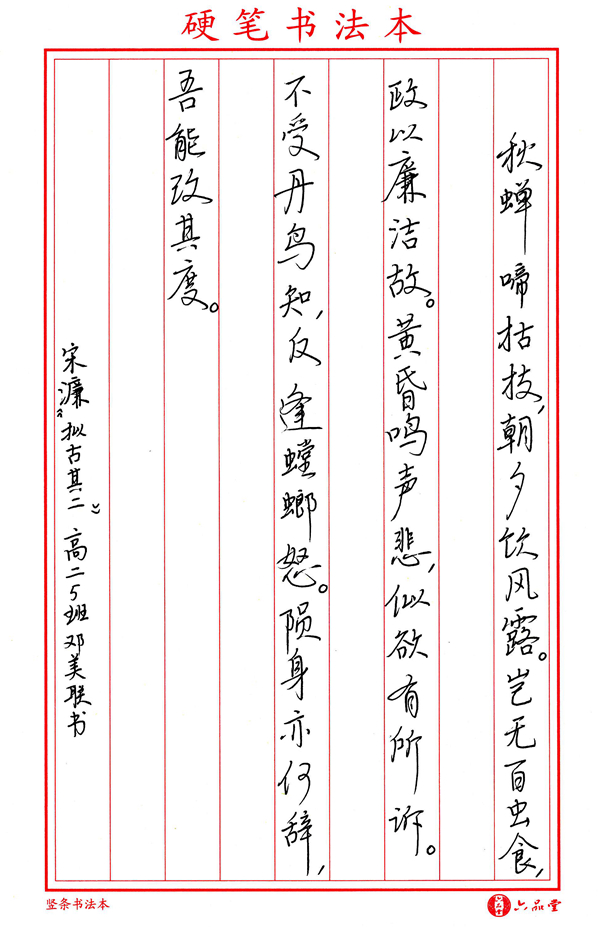 硬笔书法本
秋蝉啼枯枝,朝夕饮风露。岂无百虫食,
政以廉洁故。黄昏鸣声悲,似欲有所诉。
不受丹鸟知,反逢螳螂怒。陨身亦何辞,
吾能改其度。
宋濂《拟古其二》高二5班邓美联书
竖条书法本
六品堂